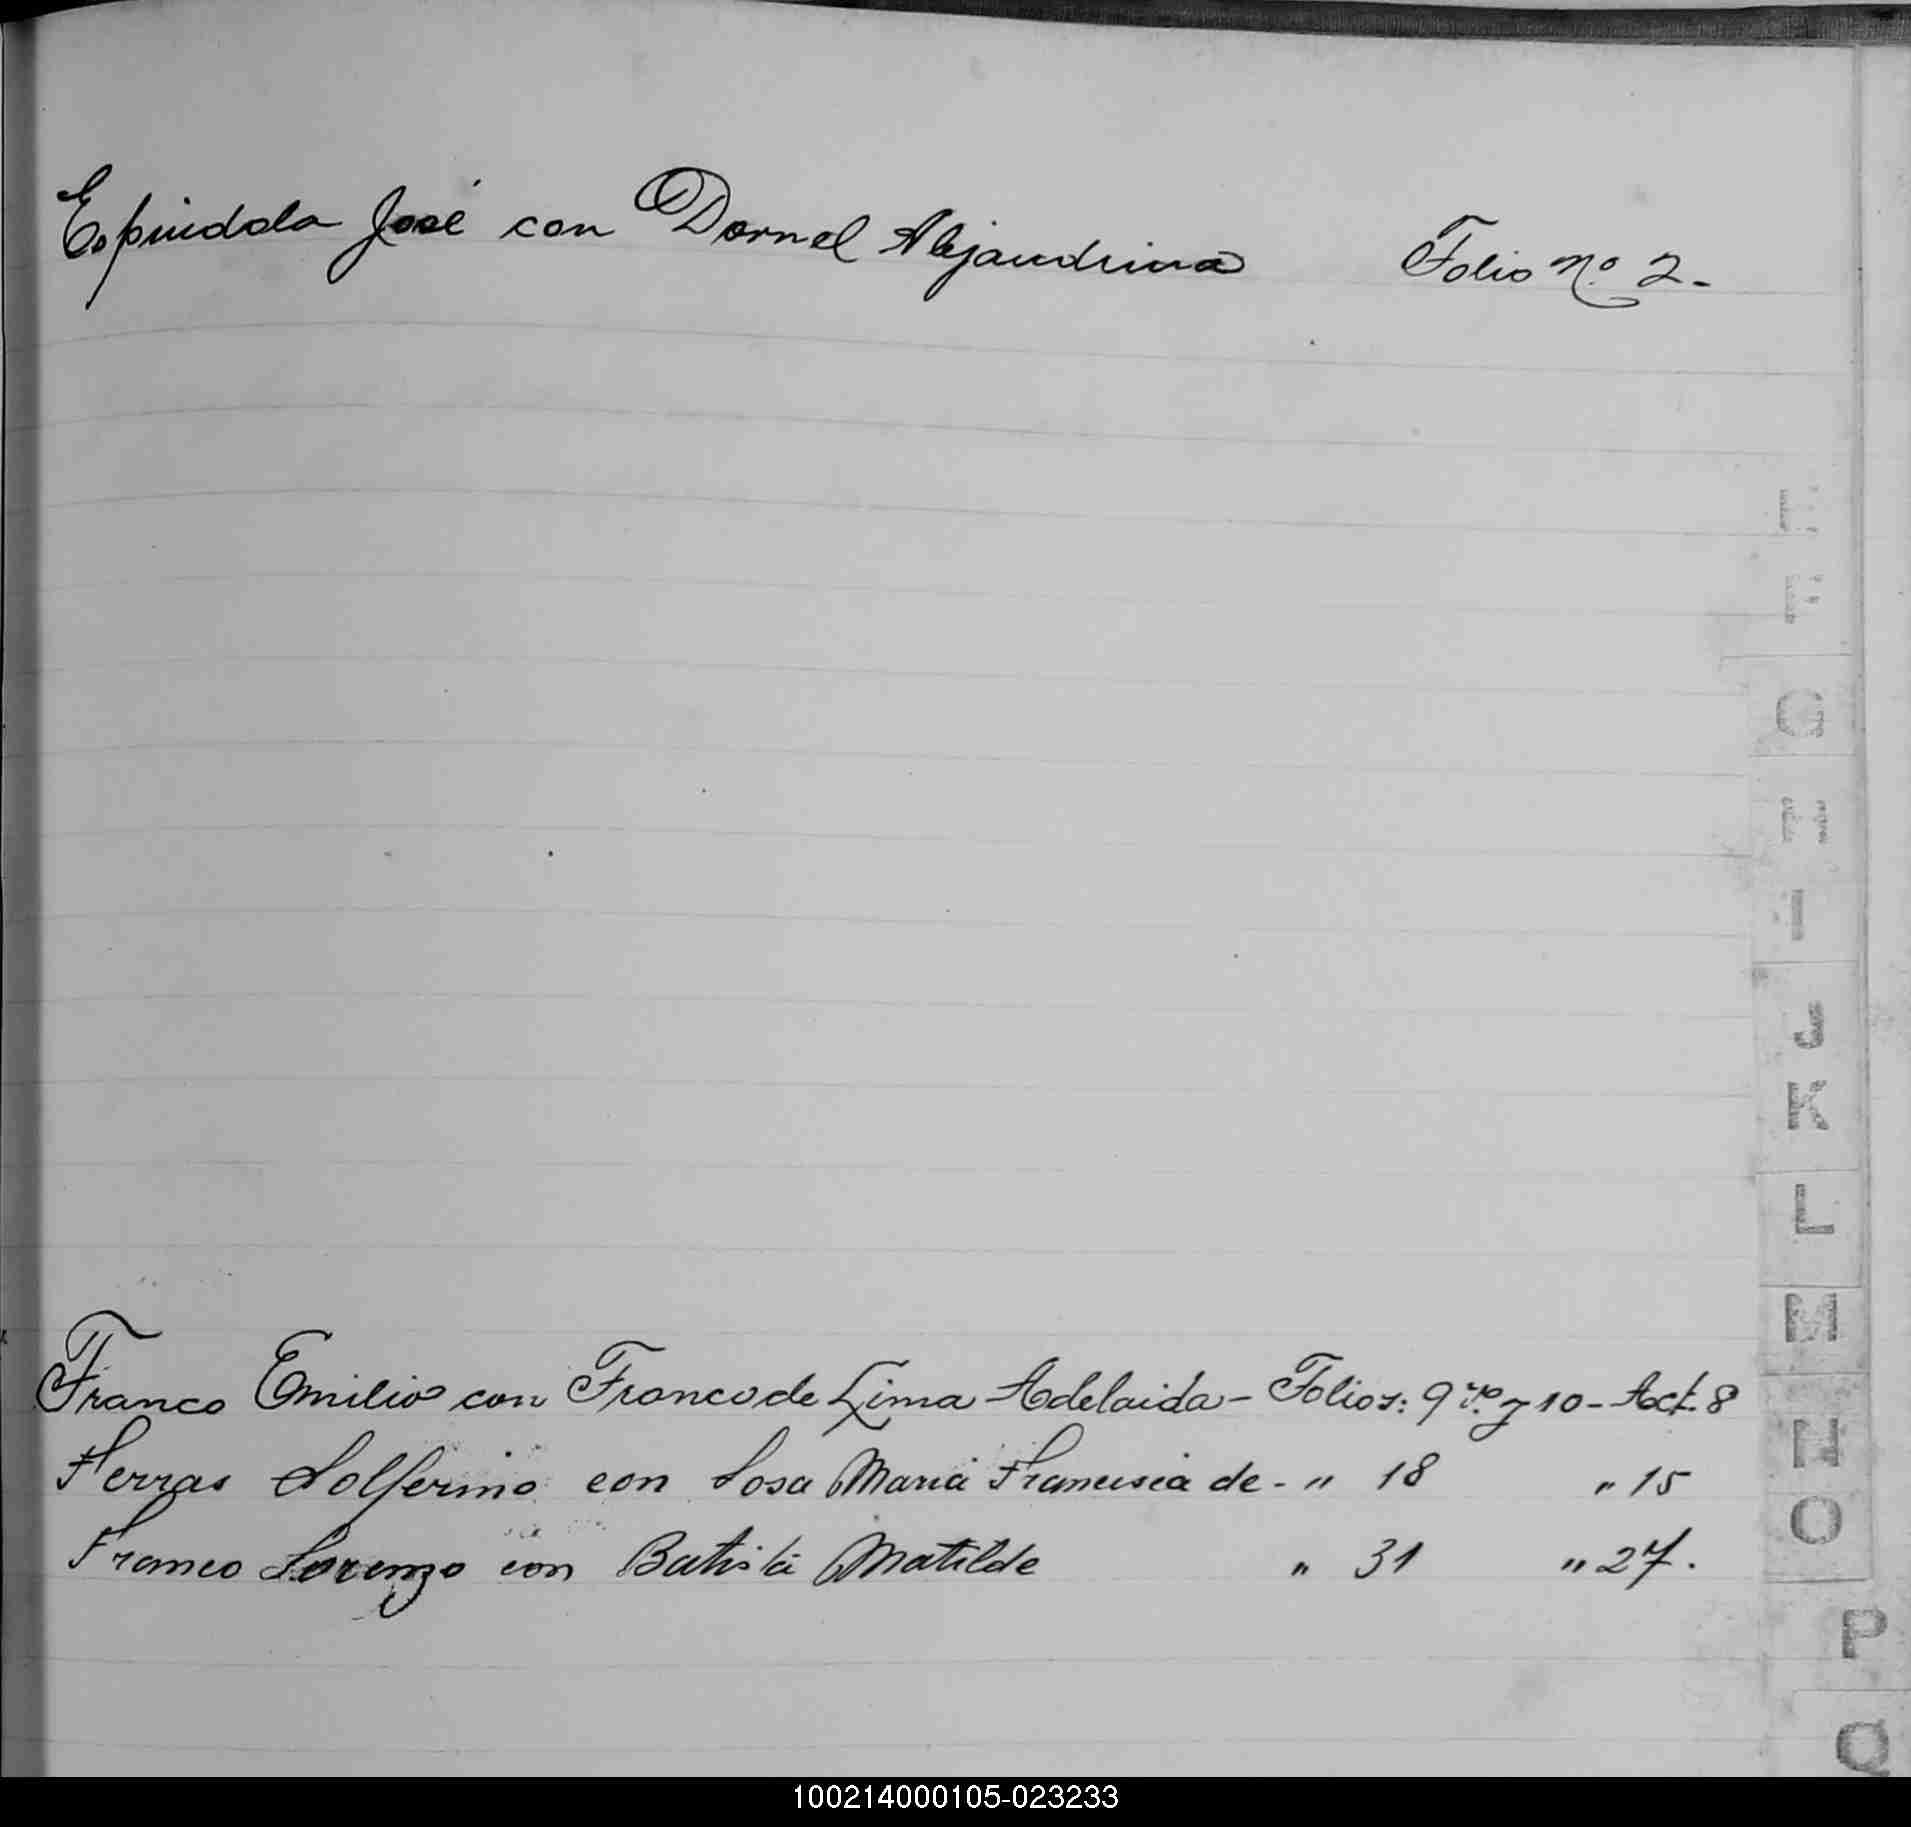 Espindola José con Dornel Alejandrina Folio No. 2.-
Franco Emilio con Franco de Lima Adelaida - Folios: 9 vo. y 10 - Act. 8
Ferras Solferino con Sosa Maria Francisca de - " 18 " 15
Franco Lorenzo con Batista Matilde " 31 " 27.
G
H
I
J
K
L
M
N
O
P
Q
100214000105-023233